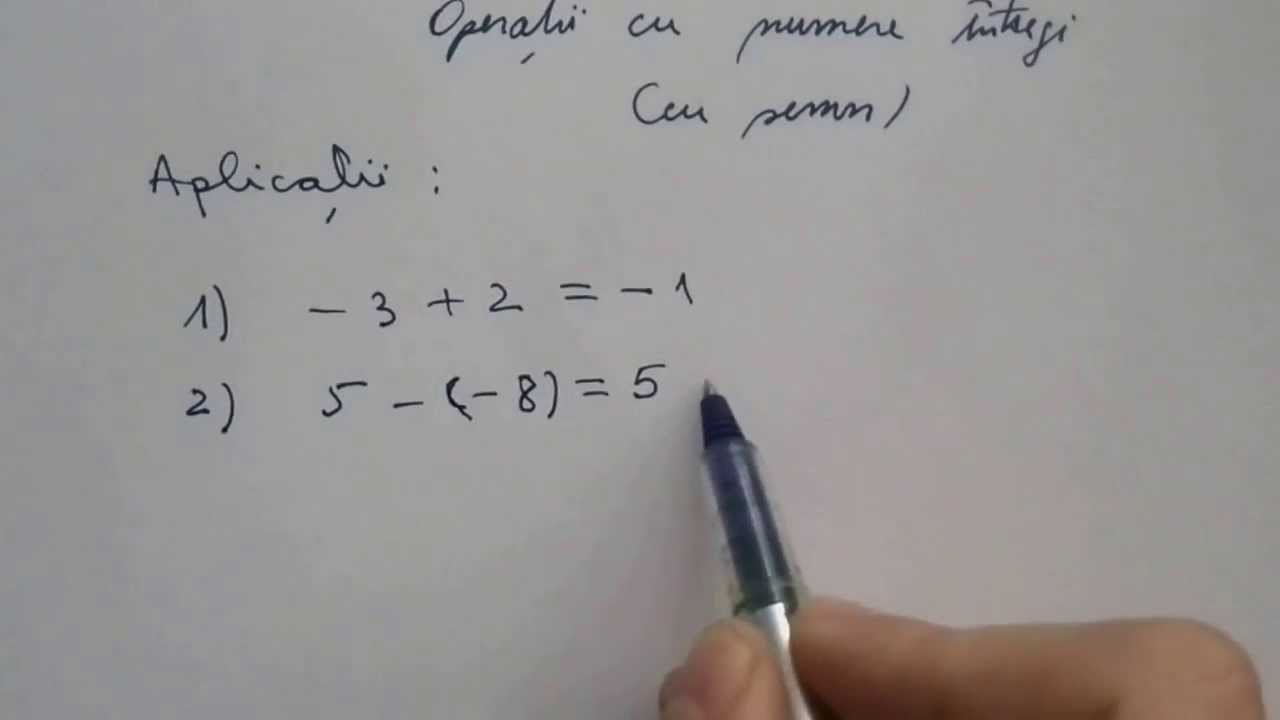 Operații cu numere întregi
(cu semn)
Aplicații :
1) - 3 + 2 = - 1
2) 5 - (- 8) = 5